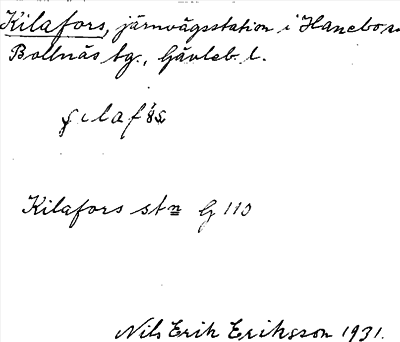 Kilafors, järnvägsstation i Hanebo sn
Bollnäs tg., Gävleb. l.
Kilafors stn G 110
Nils Erik Eriksson 1931.